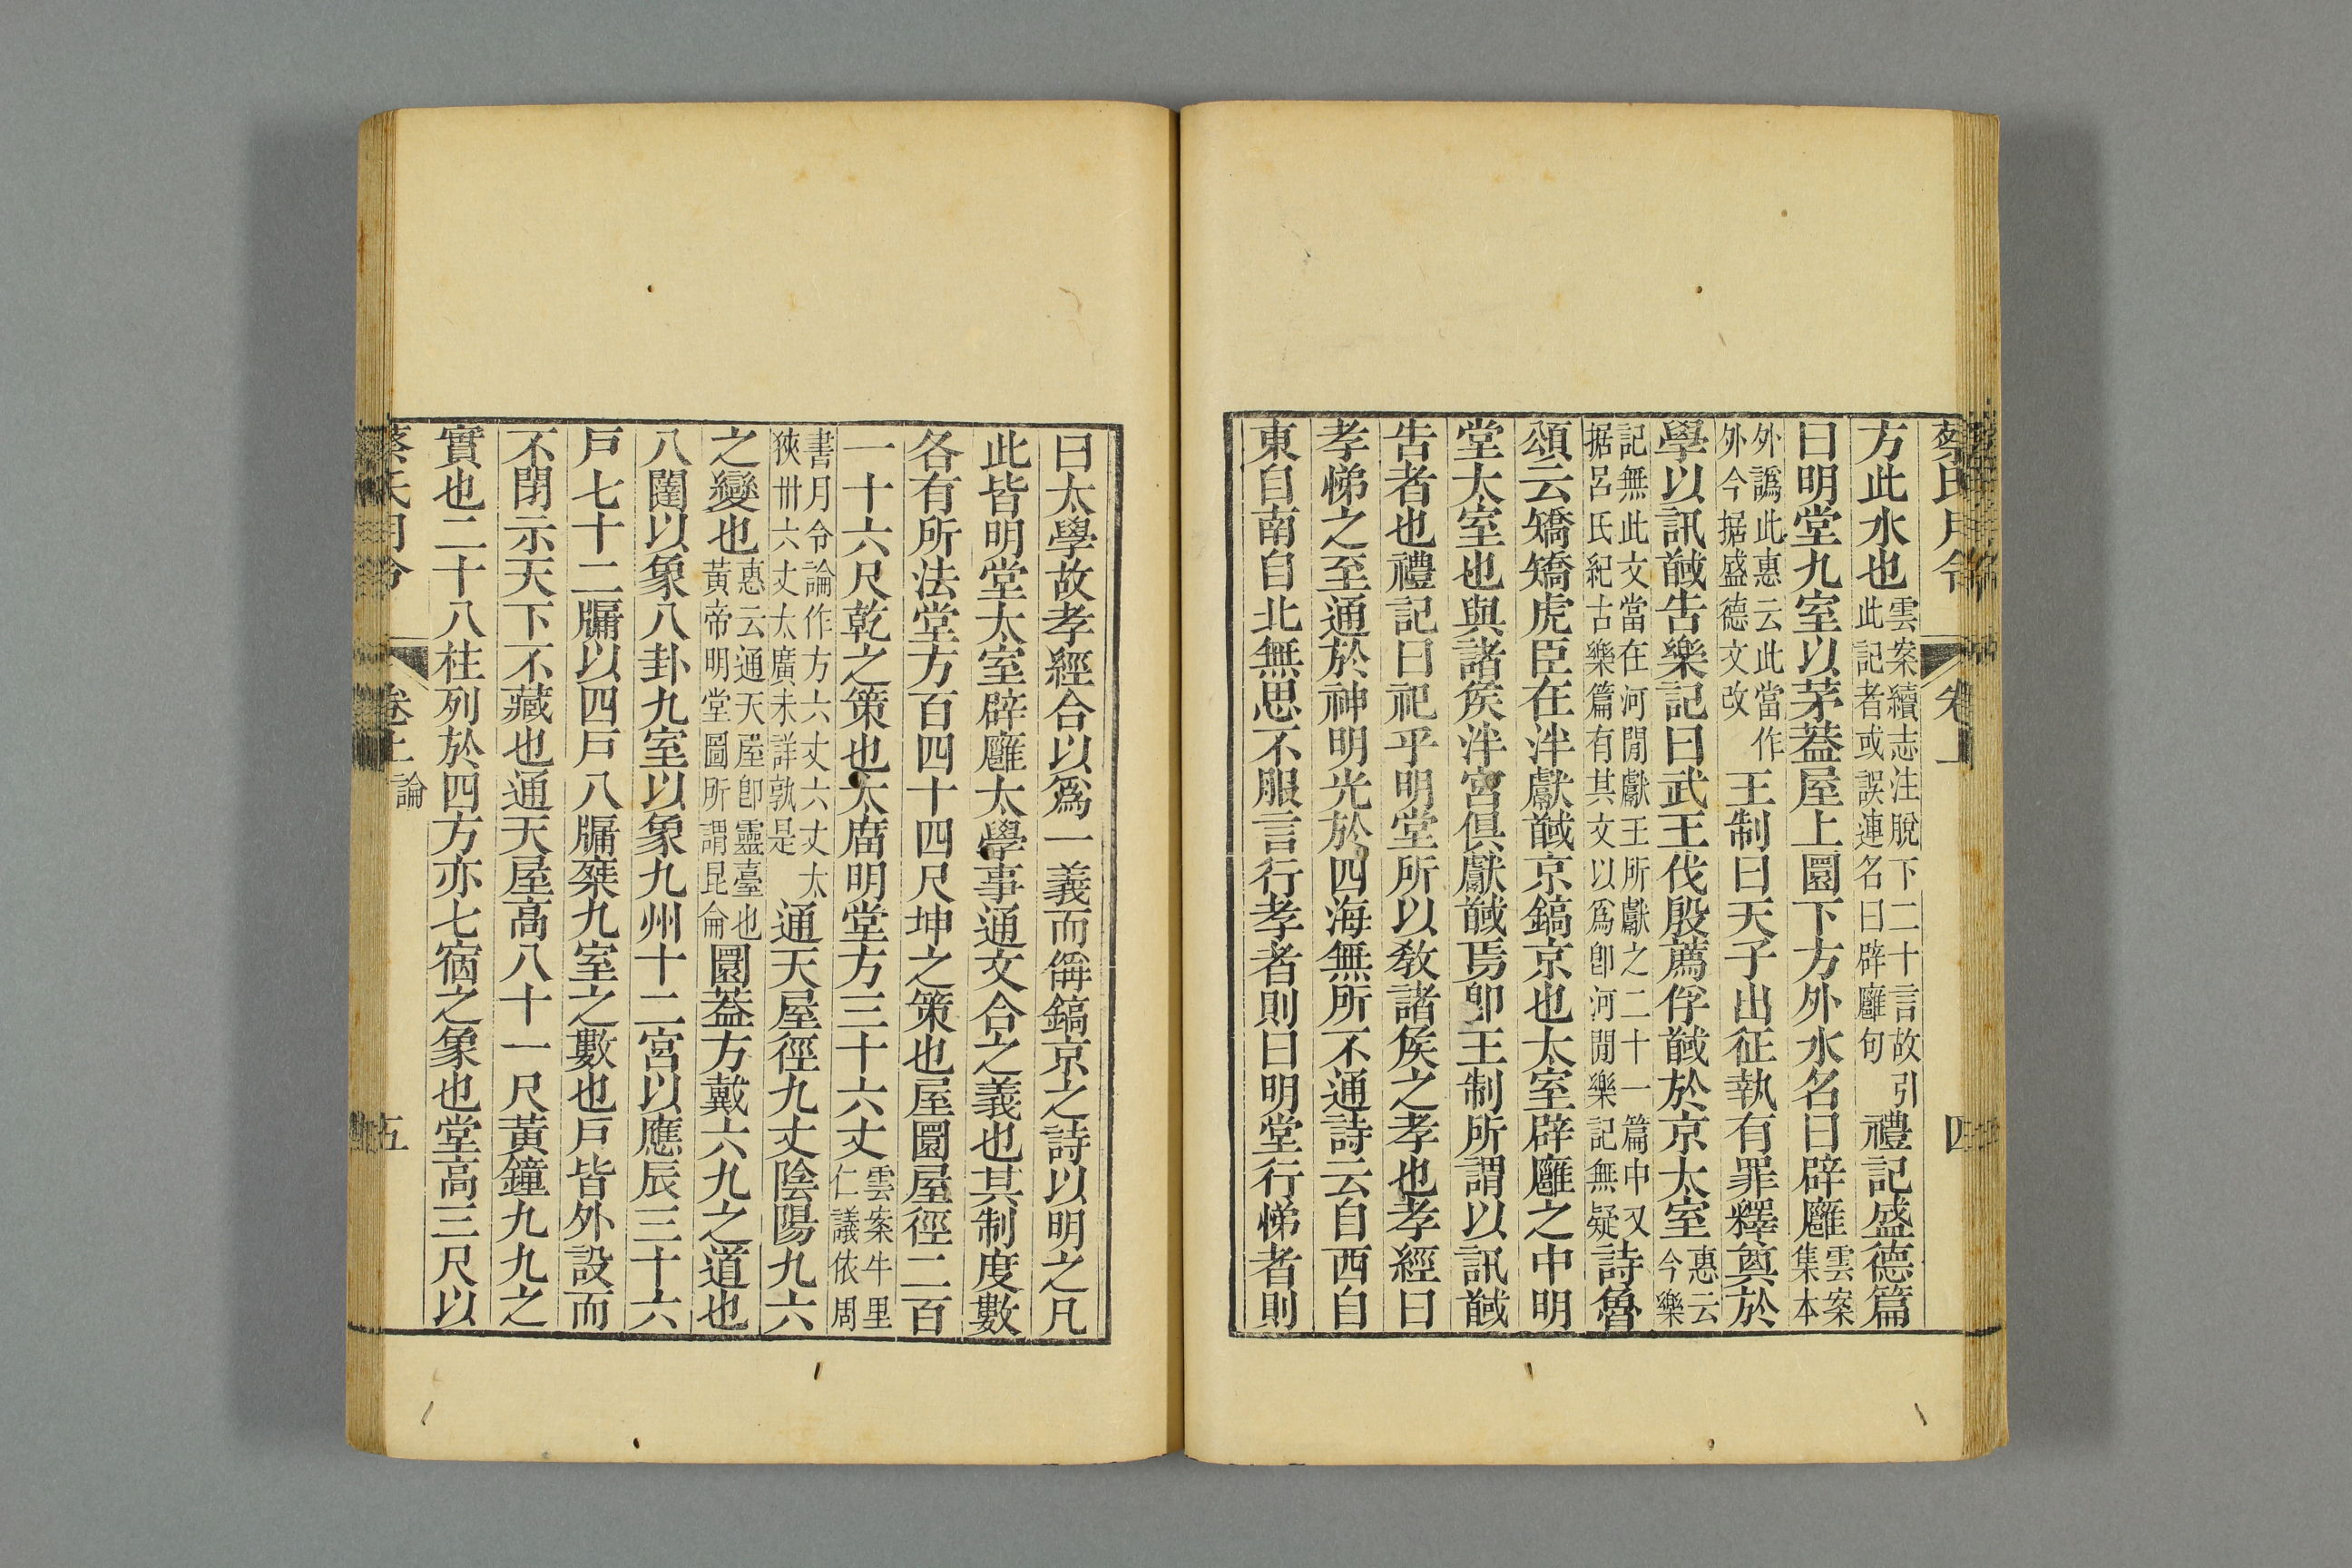 蔡氏月令 卷上 四
方此水也雲案續志注脫下二十言故引此記者或誤連名曰辟廱句禮記盛德篇
曰明堂九室以茅葢屋上圜下方外水名曰辟廱雲案集本
外譌此惠云此當作外今据盛德文改王制曰天子出征執有罪釋奠於
學以訊馘告樂記曰武王伐殷薦俘馘於京太室惠云今樂
記無此文當在河閒獻王所獻之二十一篇中又据呂氏紀古樂篇有其文以爲卽河閒樂記無疑詩魯
頌云矯矯虎臣在泮獻馘京鎬京也太室辟廱之中明
堂太室也與諸矦泮宮俱獻馘焉卽王制所謂以訊馘
告者也禮記曰祀乎明堂所以敎諸矦之孝也孝經曰
孝悌之至通於神明光於四海無所不通詩云自西自
東自南自北無思不服言行孝者則曰明堂行悌者則
曰太學故孝經合以爲一義而偁鎬京之詩以明之凡
此皆明堂太室辟廱太學事通文合之義也其制度數
各有所法堂方百四十四尺坤之策也屋圜屋徑二百
一十六尺乾之策也太廟明堂方三十六丈雲案牛里仁議依周
書月令論作方六丈六丈太狹卅六丈太廣未詳孰是通天屋徑九丈陰陽九六
之變也惠云通天屋卽靈臺也黃帝明堂圖所謂昆侖圜葢方戴六九之道也
八闥以象八卦九室以象九州十二宮以應辰三十六
戶七十二牖以四戶八牖椉九室之數也戶皆外設而
不閉示天下不藏也通天屋高八十一尺黃鐘九九之
實也二十八柱列於四方亦七宿之象也堂高三尺以
蔡氏月令 卷上 論 五